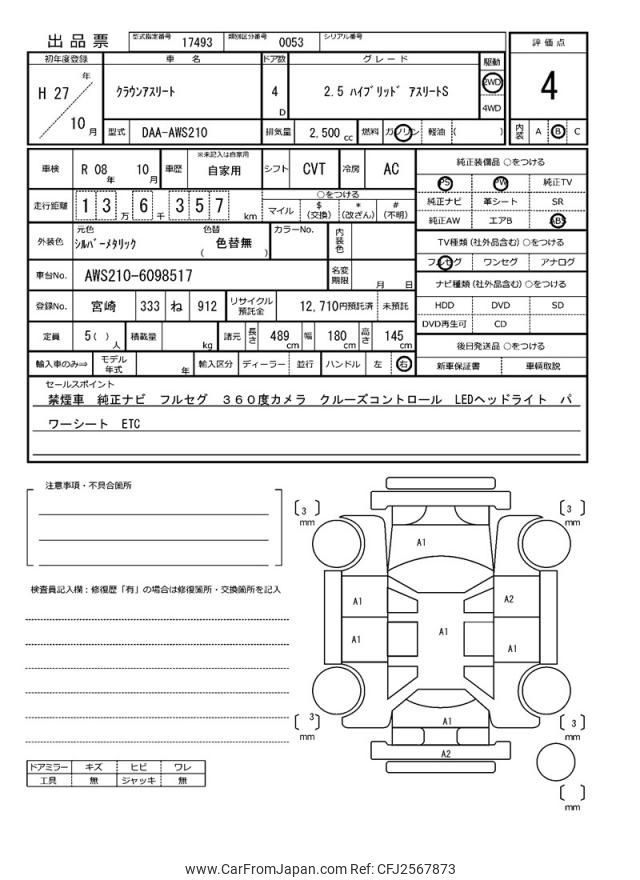 出品票 型式指定番号 17493 類別区分番号 0053 シリアル番号
初年度登録 車名 ドア数 グレード 駆動 評価点
H 27 年 10 月 クラウンアスリート 4 D 2.5 ハイブリッド アスリートS 2WD 4WD 4
型式 DAA-AWS210 排気量 2,500 cc 燃料 ガソリン 軽油 ( ) 内装 A B C
車検 R 08 年 10 月 車歴 ※未記入は自家用 自家用 シフト CVT 冷房 AC 純正装備品 ○をつける
PS PW 純正TV
走行距離 1 3 万 6 千 3 5 7 km ○をつける マイル $ (交換) * (改ざん) # (不明) 純正ナビ 革シート SR
純正AW エアB ABS
外装色 元色 シルバーメタリック 色替 ( 色替無 ) カラーNo. 内装色 TV種類 (社外品含む) ○をつける
フルセグ ワンセグ アナログ
車台No. AWS210-6098517 名変期限 月 日 ナビ種類 (社外品含む) ○をつける
登録No. 宮崎 333 ね 912 リサイクル預託金 12,710円預託済 未預託 HDD DVD SD
DVD再生可 CD
定員 5( ) 人 積載量 kg 諸元 長さ 489 cm 幅 180 cm 高さ 145 cm 後日発送品 ○をつける
輸入車のみ⇒ モデル年式 年 輸入区分 ディーラー 並行 ハンドル 左 右 新車保証書 車輌取説
セールスポイント
禁煙車 純正ナビ フルセグ 360度カメラ クルーズコントロール LEDヘッドライト パ
ワーシート ETC
注意事項・不具合箇所
検査員記入欄:修復歴「有」の場合は修復箇所・交換箇所を記入
[ 3 ] mm [ 3 ] mm
A1
A1 A2
A1 A1 A1
[ 3 ] mm A1 [ 3 ] mm
A2
[ ] mm
ドアミラー キズ ヒビ ワレ
工具 無 ジャッキ 無
www.CarFromJapan.com Ref: CFJ2567873